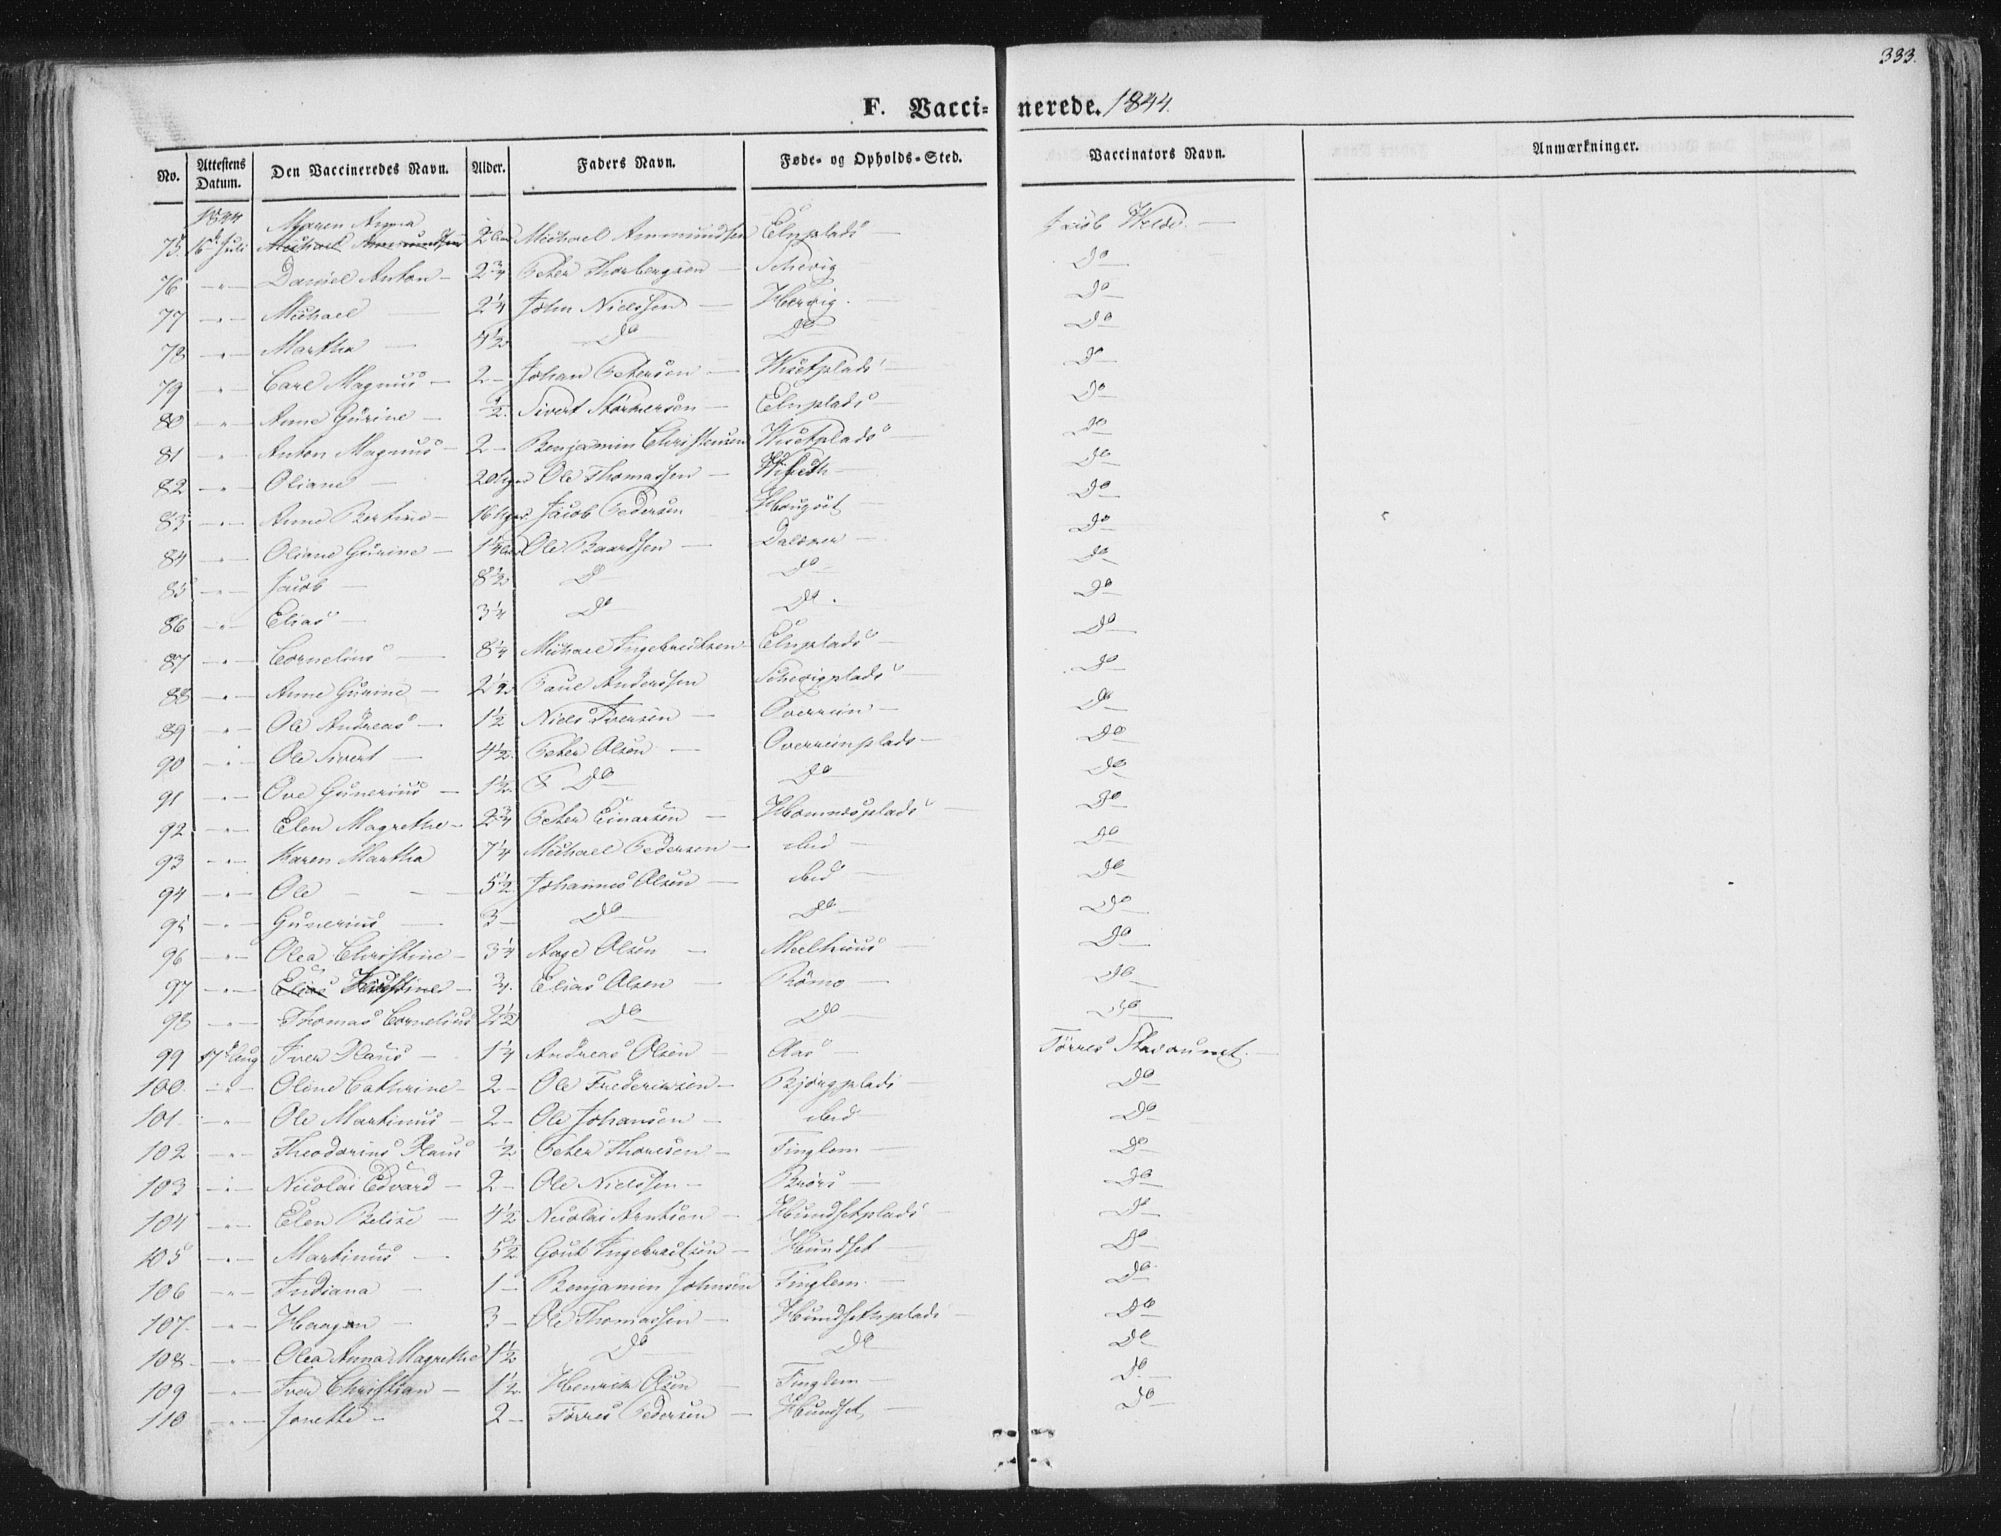 333.
F. Vaccinerede. 1844.
No. Attestens Datum. Den Vaccineredes Navn. Alder. Faders Navn. Føde- og Opholds-Sted. Vaccinators Navn. Anmærkninger.
1844 Maren Anna
75. 16d Juli Michael Ammundsen 2 Michael Ammundsen Elnplads — Jacob Welde. —
76 — " — Daniel Anton — 2¾ Peter Thorbergsen — Schevig — Do —
77 — " — Michael — 2¼ John Nielssen — Hervig. — Do —
78 — " — Martha — 4½ — Do — Do — Do —
79 — " — Carl Magnus — 2 — Johan Petersen — Wisetplads — Do —
80 — " — Anne Gurine — ½. Sivert Størkersen — Elnplads — Do —
81 — " — Anton Magnus — 2 — Benjamin Christensen Wisetplads — Do —
82 — " — Oliane — 20 Uger Ole Thomassen — Do —
83 — " — Anne Bertine — 16 Uger Jacob Pedersen Hougset — Do —
84 — " — Oliane Gurine — Ole Baardsen — Dalener — Do —
85 — " — Jacob — 8½ Do — Do — Do —
86 — " — Elias — 3¼ Do — Do. Do —
87 — " — Cornelius — 8¼ Michael Ingebrectsen Elnplads — Do —
88 — " — Anne Gurine — 2½ Paul Anderssen Schevigplads — Do —
89 — " — Ole Andreas — 1½ Niels Iversen — Overrein — Do —
90 — " — Ole Sivert — 4½. Peter Olsen — Overreinplads — Do —
91 — " — Ove Gunerius — 1½. Do — Do — Do —
92 — " — Elen Magrethe — 2¾ Peter Einarsen — Hommesplads — Do —
93 — " — Karen Martha 7¼ Michael Pedersen — ibid — Do —
94 — " — Ole — 5½. Johannes Olsen — ibid — Do —
95 — " — Gunerius — 3 — Do — Do — Do —
96 — " — Olea Christine — 3¼ Aage Olsen — Melhuus — Do —
97 — " — Elias — ¾. Elias Olsen — Römo — Do —
98 — " — Thomas Cornelius 2½ Do — Do — Do —
99 17d Aug Iver Klaus — 1¼ Andreas Olsen — Aas — Tørres Stavrumet. —
100. — " — Oline Cathrine — 2 — Ole Frederiksen — Bjørgplads Do —
101. — " — Ole Martinus — 2 — Ole Johansen — ibid — Do —
102 — " — Theodorius Klaus ½ Peter Thoresen — Finglem — Do —
103 — " — Nicolai Edvard — 2 — Ole Nielssen — Do —
104 — " — Elen Belise — 4½ Nicolai Arntsen — Hundsetplads — Do —
105 — " — Martinus — 5½ Gout Ingebrectsen — Hundset — Do —
106 — " — Indiana — 1 — Benjamin Johnsen Finglem. — Do —
107. — " — Haagen — 3 — Ole Thomassen — Hundsethplads — Do —
108. — " — Olea Anna Magrethe 1½ Do — Do — Do —
109 — " — Iver Christian — 1½. Henrik Olsen — Finglem — Do. —
110 — " — Jonette — 2 — Tørres Pedersen — Hundset, — Do —